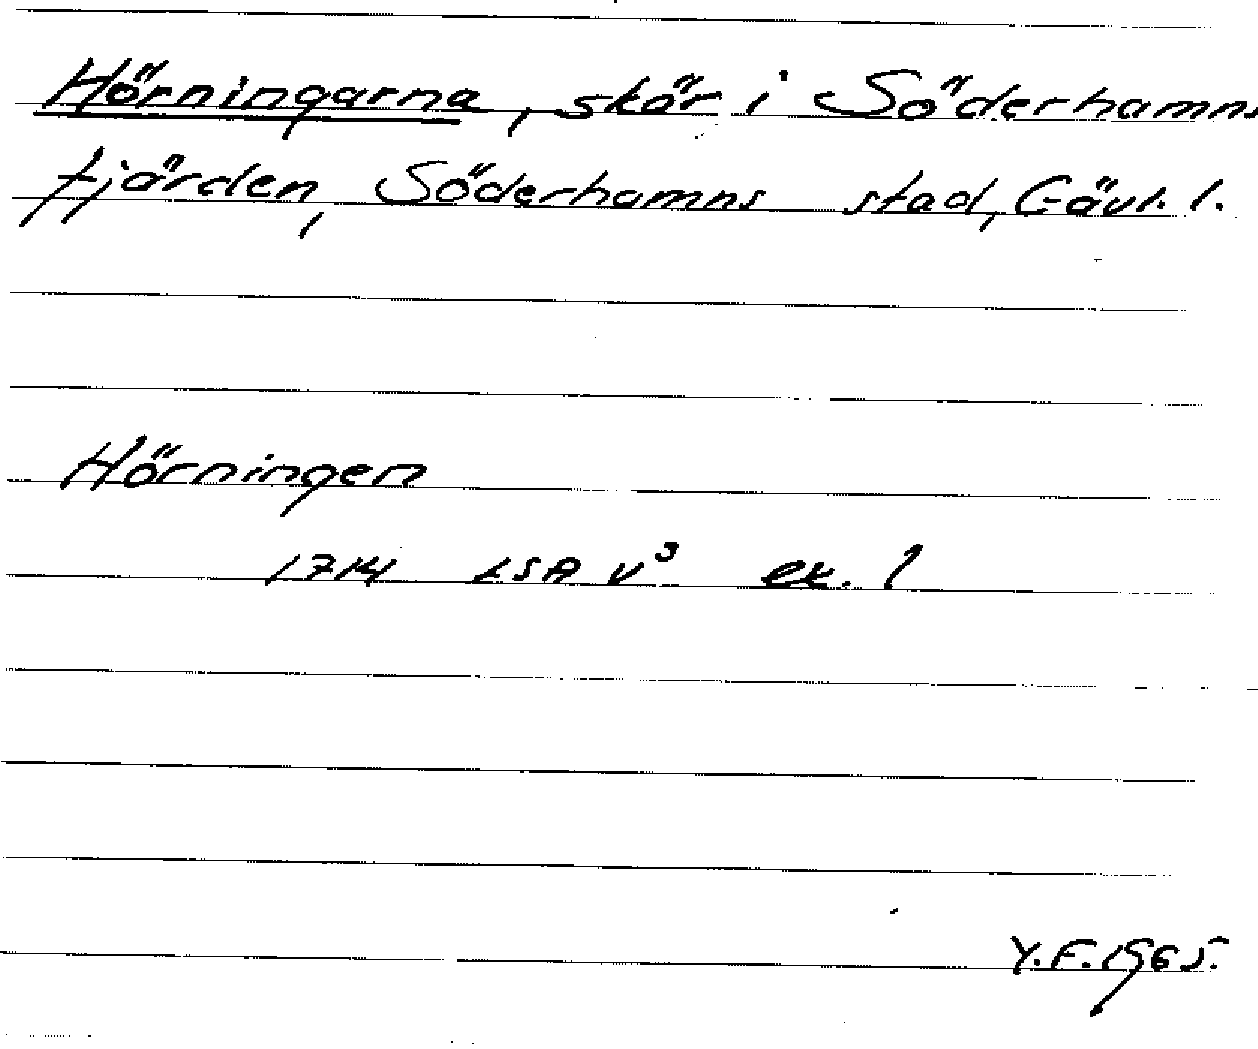 Hörningarna, skär i Söderhamns
fjärden, Söderhamns stad, Gävl. l.
Hörningen
1714 LSA V³ ek. 1
Y.F. 1965.